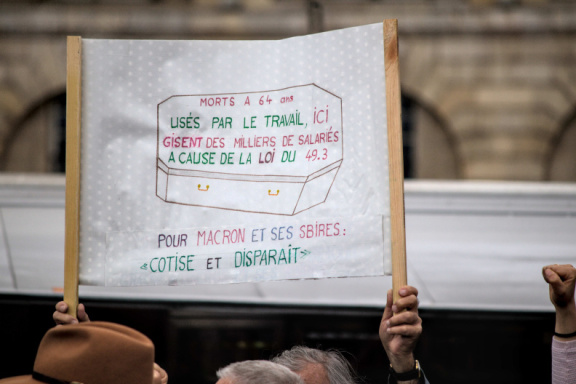 MORTS A 64 ans
USÉS PAR LE TRAVAIL, ICI
GISENT DES MILLIERS DE SALARIÉS
A CAUSE DE LA LOI DU 49.3
POUR MACRON ET SES SBIRES :
«COTISE ET DISPARAIT»